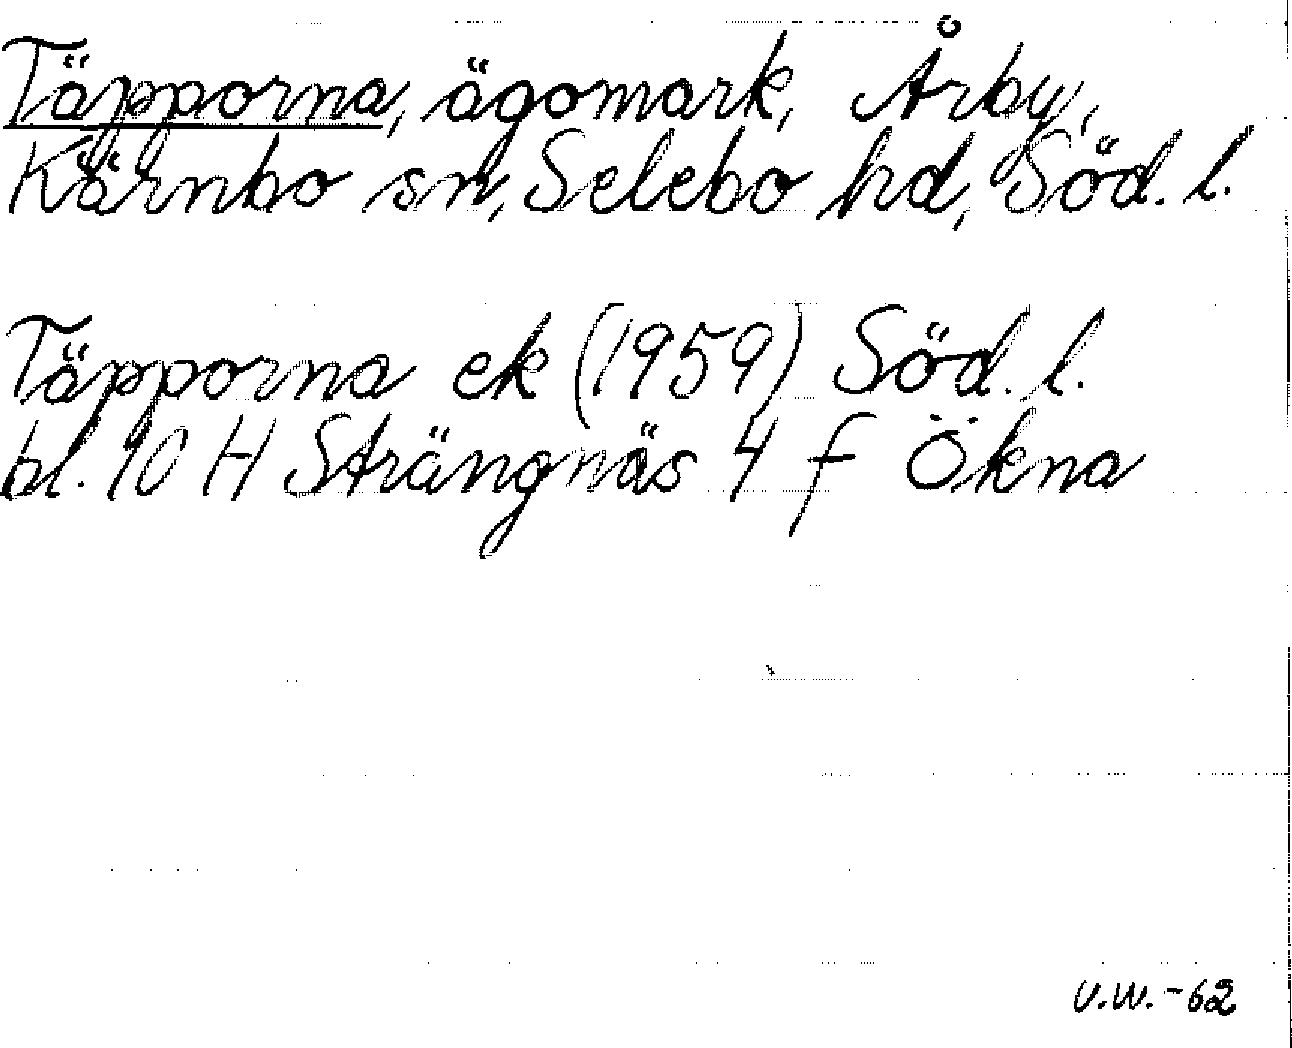 Täpporna, ägomark, Årby,
Kärnbo sn, Selebo hd, Söd. l.
Täpporna ek (1959) Söd. l.
bl. 10 H Strängnäs 4 f Ökna
V.W. -62